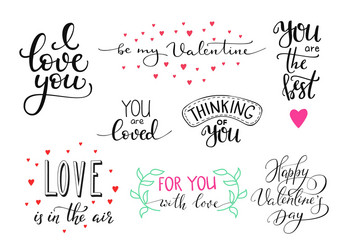 I
love
you
be my Valentine
You
are
the
best
YOU
are
loved
THINKING
of
YOU
LOVE
is in the air
FOR YOU
with love
Happy
Valentine's
Day